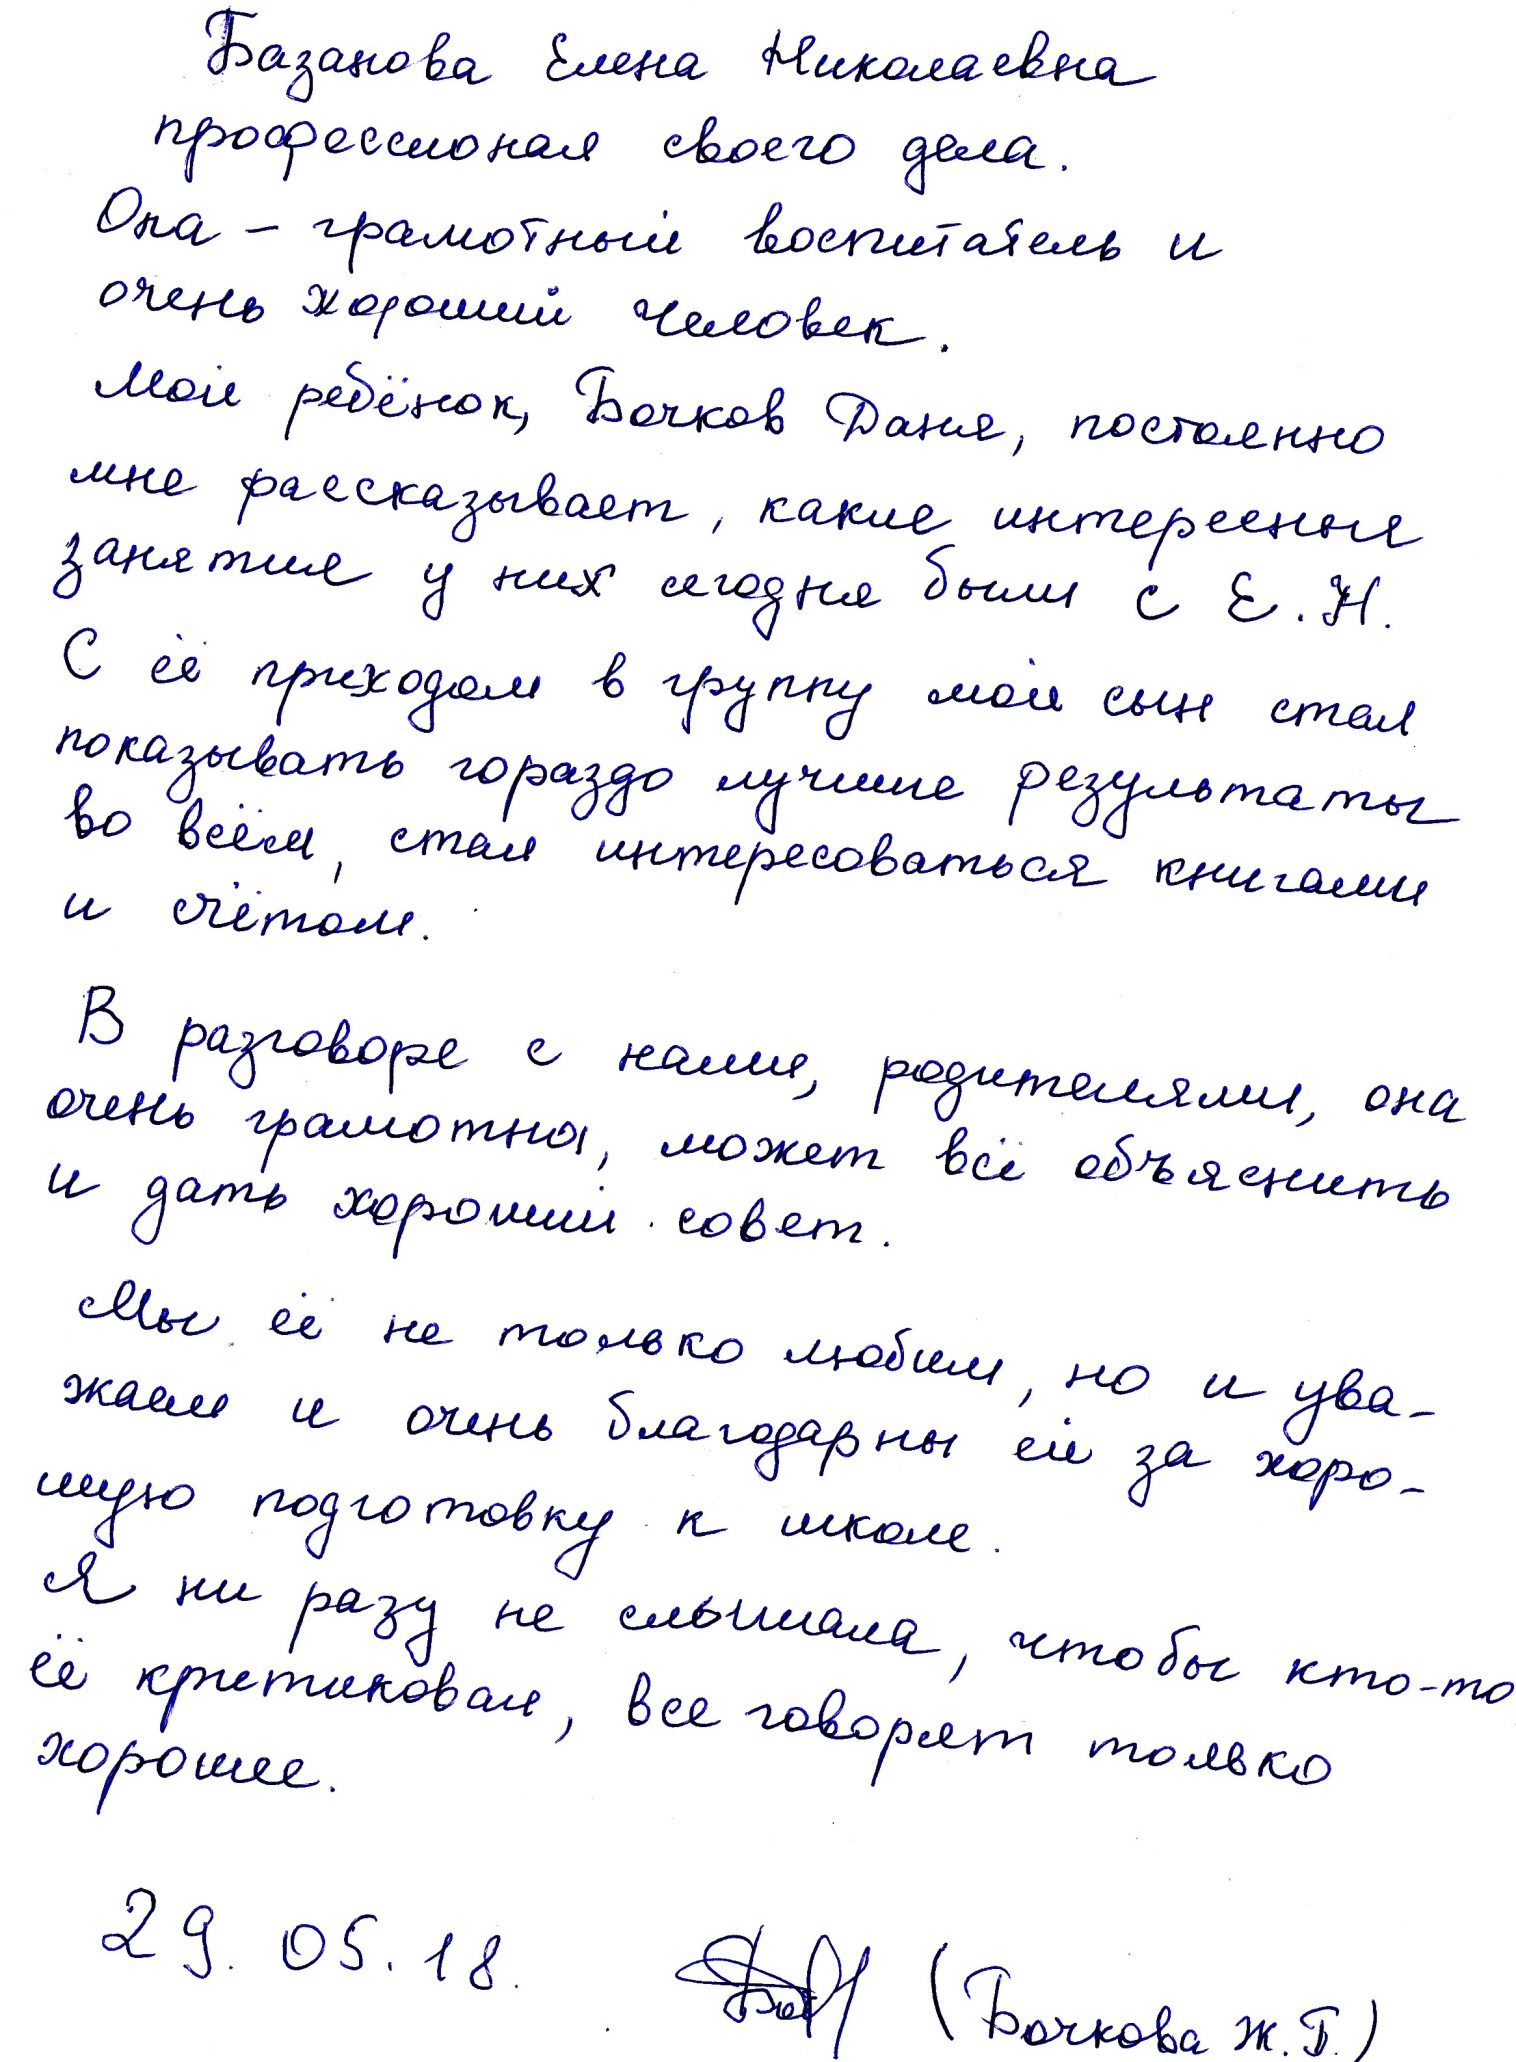 Базанова Елена Николаевна
профессионал своего дела.
Она – грамотный воспитатель и
очень хороший человек.
Мой ребёнок, Бочков Даня, постоянно
мне рассказывает, какие интересные
занятия у них сегодня были с Е.Н.
С её приходом в группу мой сын стал
показывать гораздо лучшие результаты
во всём, стал интересоваться книгами
и счётом.
В разговоре с нами, родителями, она
очень грамотна, может всё объяснить
и дать хороший совет.
Мы её не только любим, но и ува-
жаем и очень благодарны ей за хоро-
шую подготовку к школе.
Я ни разу не слышала, чтобы кто-то
её критиковал, все говорят только
хорошее.
29.05.18. (Бочкова Ж.Г.)